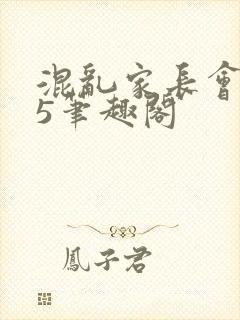 混亂家長會
5筆趣閣
鳳子君